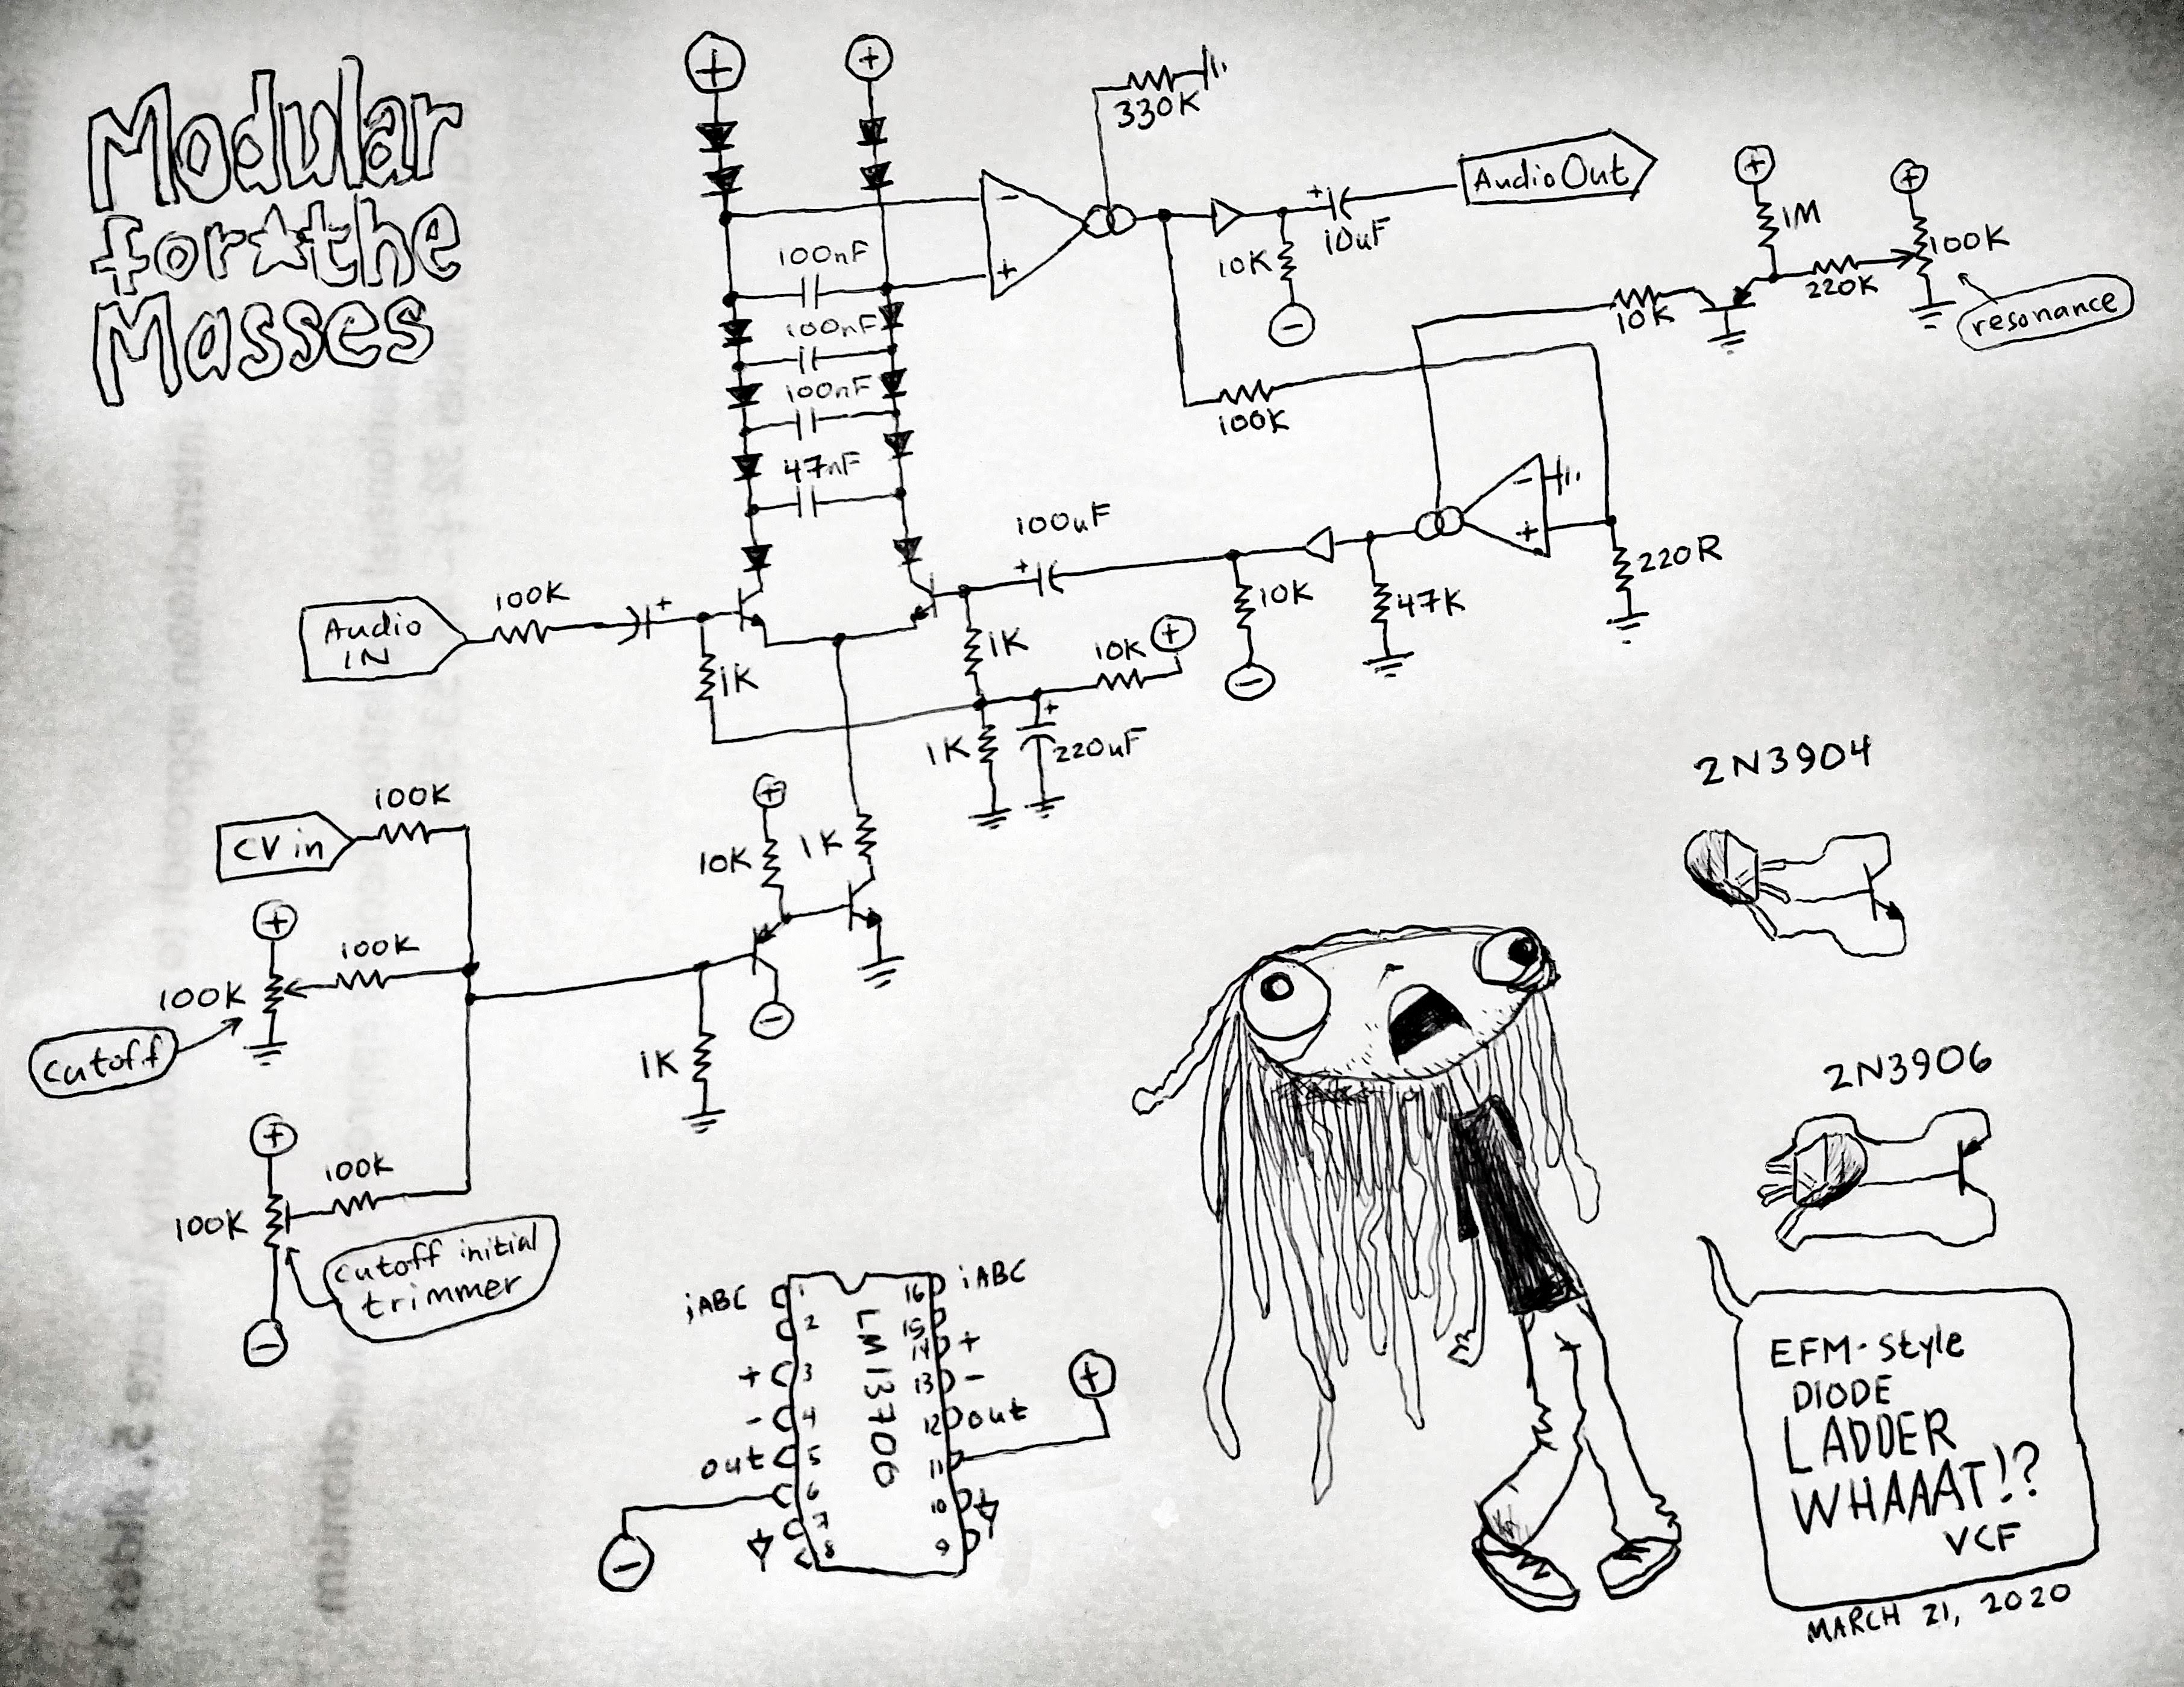 Modular
for★the
Masses
+
+
330K
Audio Out
-
+
100nF
100nF
100nF
47nF
10K
+
10uF
-
+
1M
+
100K
220K
10K
resonance
100K
-
+
220R
47K
10K
-
100uF
+
Audio
IN
100K
+
1K
1K
10K
+
1K
+
220uF
CV in
100K
+
100K
100K
cutoff
+
100K
100K
-
cutoff initial
trimmer
+
10K
1K
-
1K
2N3904
2N3906
LM13706
iABC 1
2
+ 3
- 4
out 5
6
7
8
16 iABC
15
14 +
13 -
12 out
11
10
9
+
-
EFM-Style
DIODE
LADDER
WHAAAT!?
VCF
MARCH 21, 2020